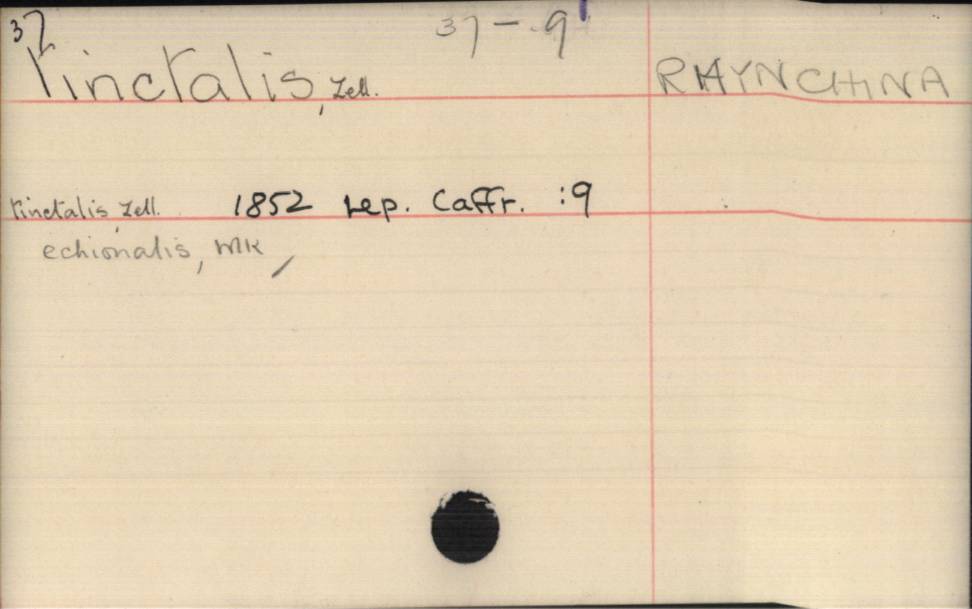 37
37 - 9
tinctalis, Zell. RHYNCHINA
tinctalis, Zell. 1852 Lep. Caffr. :9
echionalis, Wlk